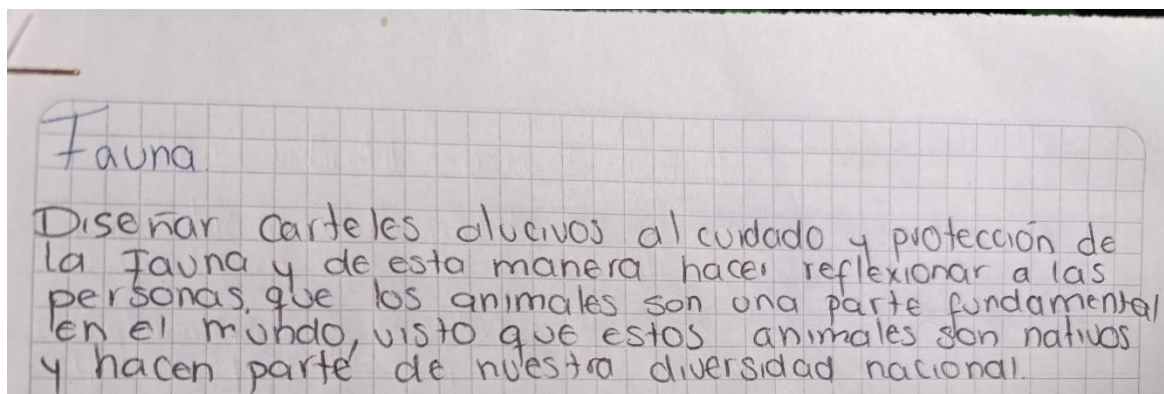 Fauna.
Diseñar carteles alucivos al cuidado y protección de
la Fauna y de esta manera hacer reflexionar a las
personas, que los animales son una parte fundamental
en el mundo, visto que estos animales son nativos
y hacen parte de nuestra diversidad nacional.